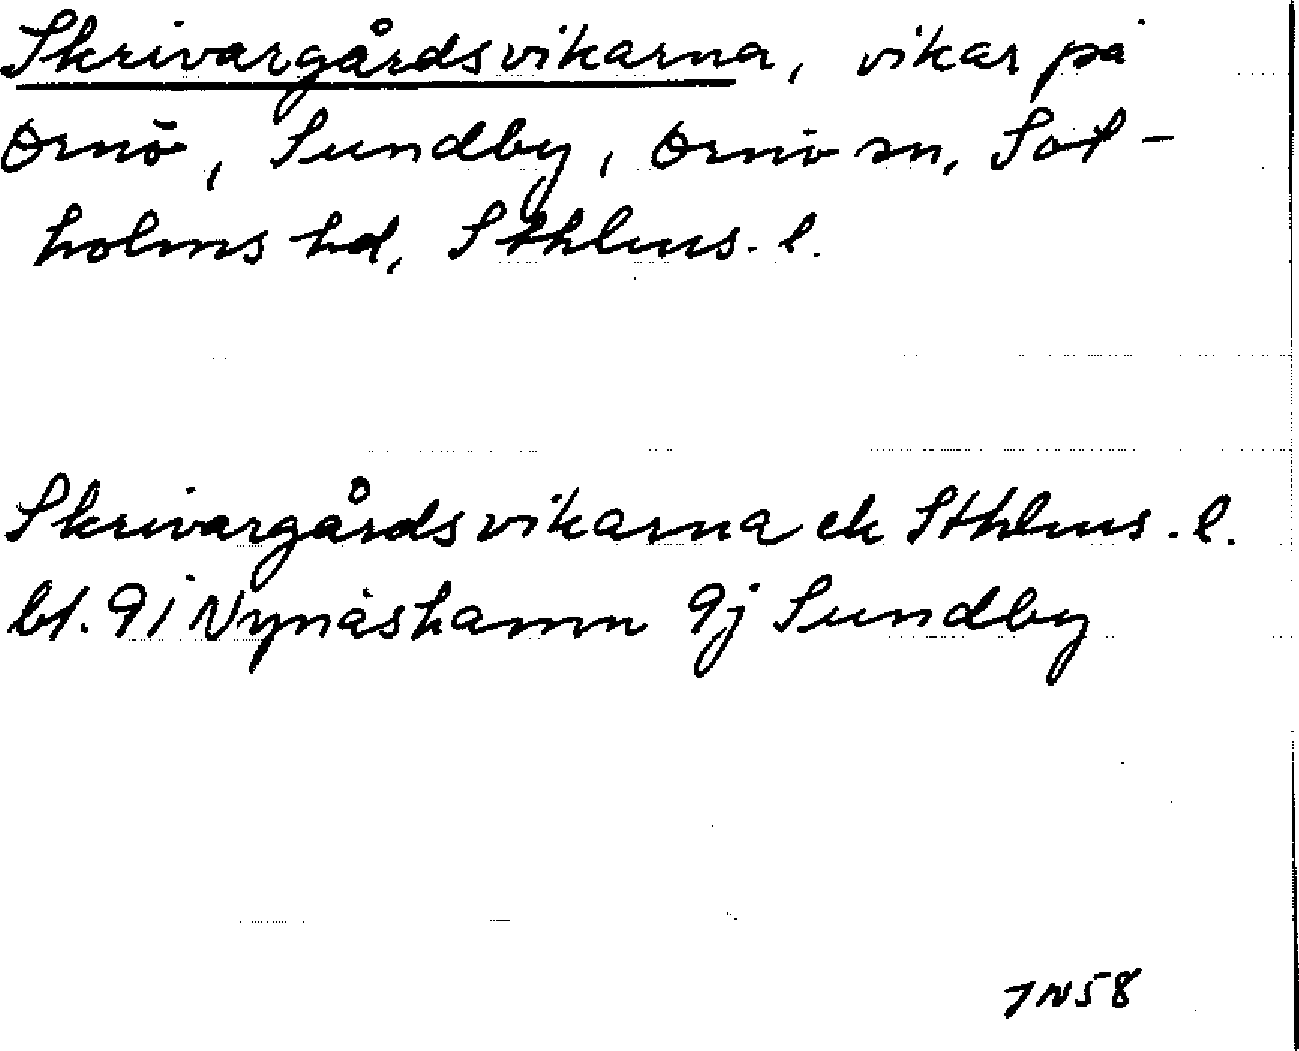 Skrivargårdsvikarna, vikar på
Ornö, Sundby, Ornö sn, Sot-
holms hd, Sthlms. l.
Skrivargårdsvikarna ek Sthlms. l.
bl. 91 Nynäshamn 9j Sundby
JN58